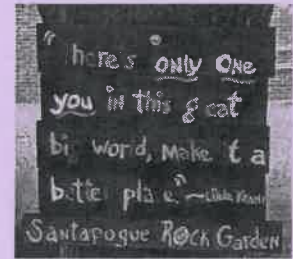 "There's only one
you in this great
big world, make it a
better place."~
Santapogue Rock Garden